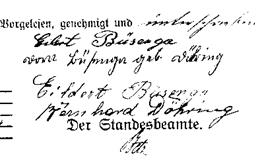 Vorgelesen, genehmigt und unterschrieben
Eibert Büsenga
Büsenga geb Döhring
Eildert Büsenga
Bernhard Döhring
Der Standesbeamte.